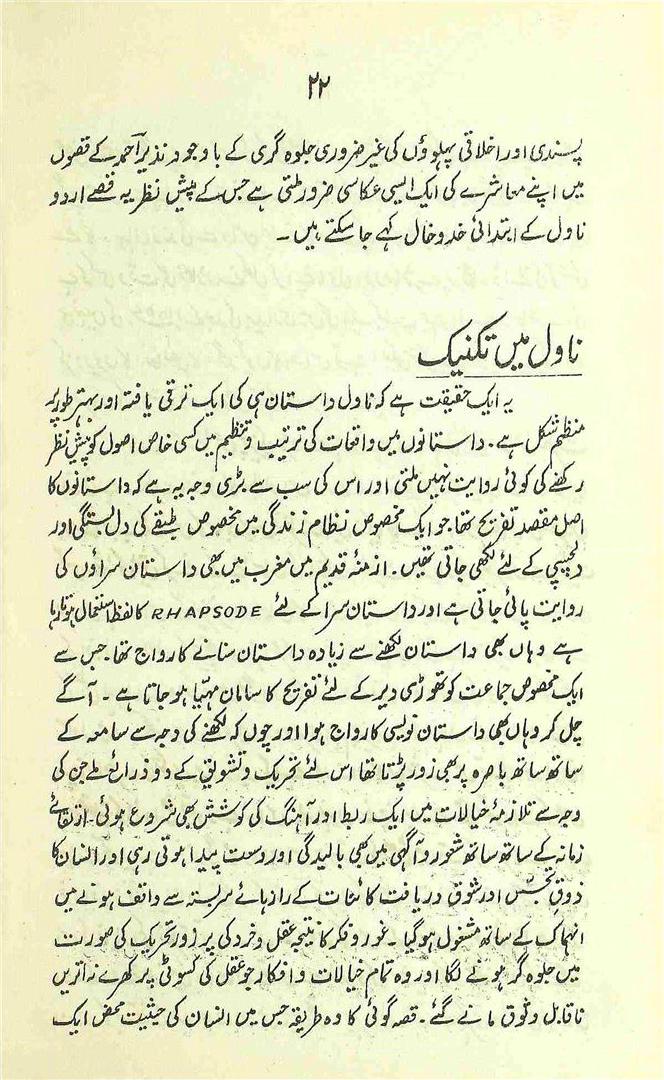 ۲۲
پسندی اور اخلاقی پہلوؤں کی غیر ضروری جلوہ گری کے باوجود نذیر احمد کے قصوں
میں اپنے معاشرے کی ایک ایسی عکاسی ضرور ملتی ہے جس کے پیش نظر یہ قصے اردو
ناول کے ابتدائی خدوخال کہے جا سکتے ہیں ۔
ناول میں تکنیک
یہ ایک حقیقت ہے کہ ناول داستان ہی کی ایک ترقی یافتہ اور بہتر طور پر
منظم شکل ہے ۔ داستانوں میں واقعات کی ترتیب و تنظیم میں کسی خاص اصول کو پیش نظر
رکھنے کی کوئی روایت نہیں ملتی اور اس کی سب سے بڑی وجہ یہ ہے کہ داستانوں کا
اصل مقصد تفریح تھا جو ایک مخصوص نظام زندگی میں مخصوص طبقے کی دل بستگی اور
دلچسپی کے لئے لکھی جاتی تھیں ۔ ازمنۂ قدیم میں مغرب میں بھی داستان سراؤں کی
روایت پائی جاتی ہے اور داستان سرا کے لئے RHAPSODE کا لفظ استعمال ہوتا رہا
ہے وہاں بھی داستان لکھنے سے زیادہ داستان سنانے کا رواج تھا ۔ جس سے
ایک مخصوص جماعت کو تھوڑی دیر کے لئے تفریح کا سامان مہیا ہو جاتا ہے ۔ آگے
چل کر وہاں بھی داستان نویسی کا رواج ہوا اور چوں کہ لکھنے کی وجہ سے سامعہ کے
ساتھ ساتھ باصرہ پر بھی زور پڑتا تھا اس لئے تحریک و تشویق کے دو ذرائع ملے جن کی
وجہ سے تلازمۂ خیالات میں ایک ربط اور آہنگ کی کوشش بھی شروع ہوئی ۔ ارتقائے
زمانہ کے ساتھ ساتھ شعور و آگہی میں بھی بالیدگی اور وسعت پیدا ہوتی رہی اور انسان کا
ذوق تجسّس اور شوق دریافت کائنات کے راز ہائے سربستہ سے واقف ہونے میں
انہماک کے ساتھ مشغول ہو گیا ۔ غور و فکر کا نتیجہ عقل و خرد کی پر زور تحریک کی صورت
میں جلوہ گر ہونے لگا اور وہ تمام خیالات و افکار جو عقل کی کسوٹی پر کھرے نہ اتریں
ناقابل وثوق مانے گئے ۔ قصہ گوئی کا وہ طریقہ جس میں انسان کی حیثیت محض ایک